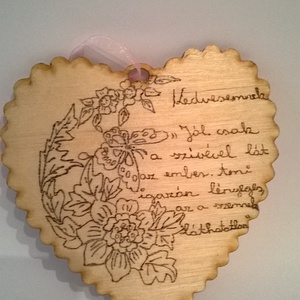 Kedvesemnek
„Jól csak
a szívével lát
az ember. Ami
igazán lényeges
az a szemnek
láthatatlan"